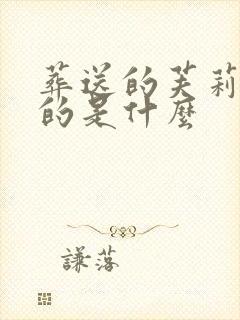 葬送的芙莉
的是什麼
謙落